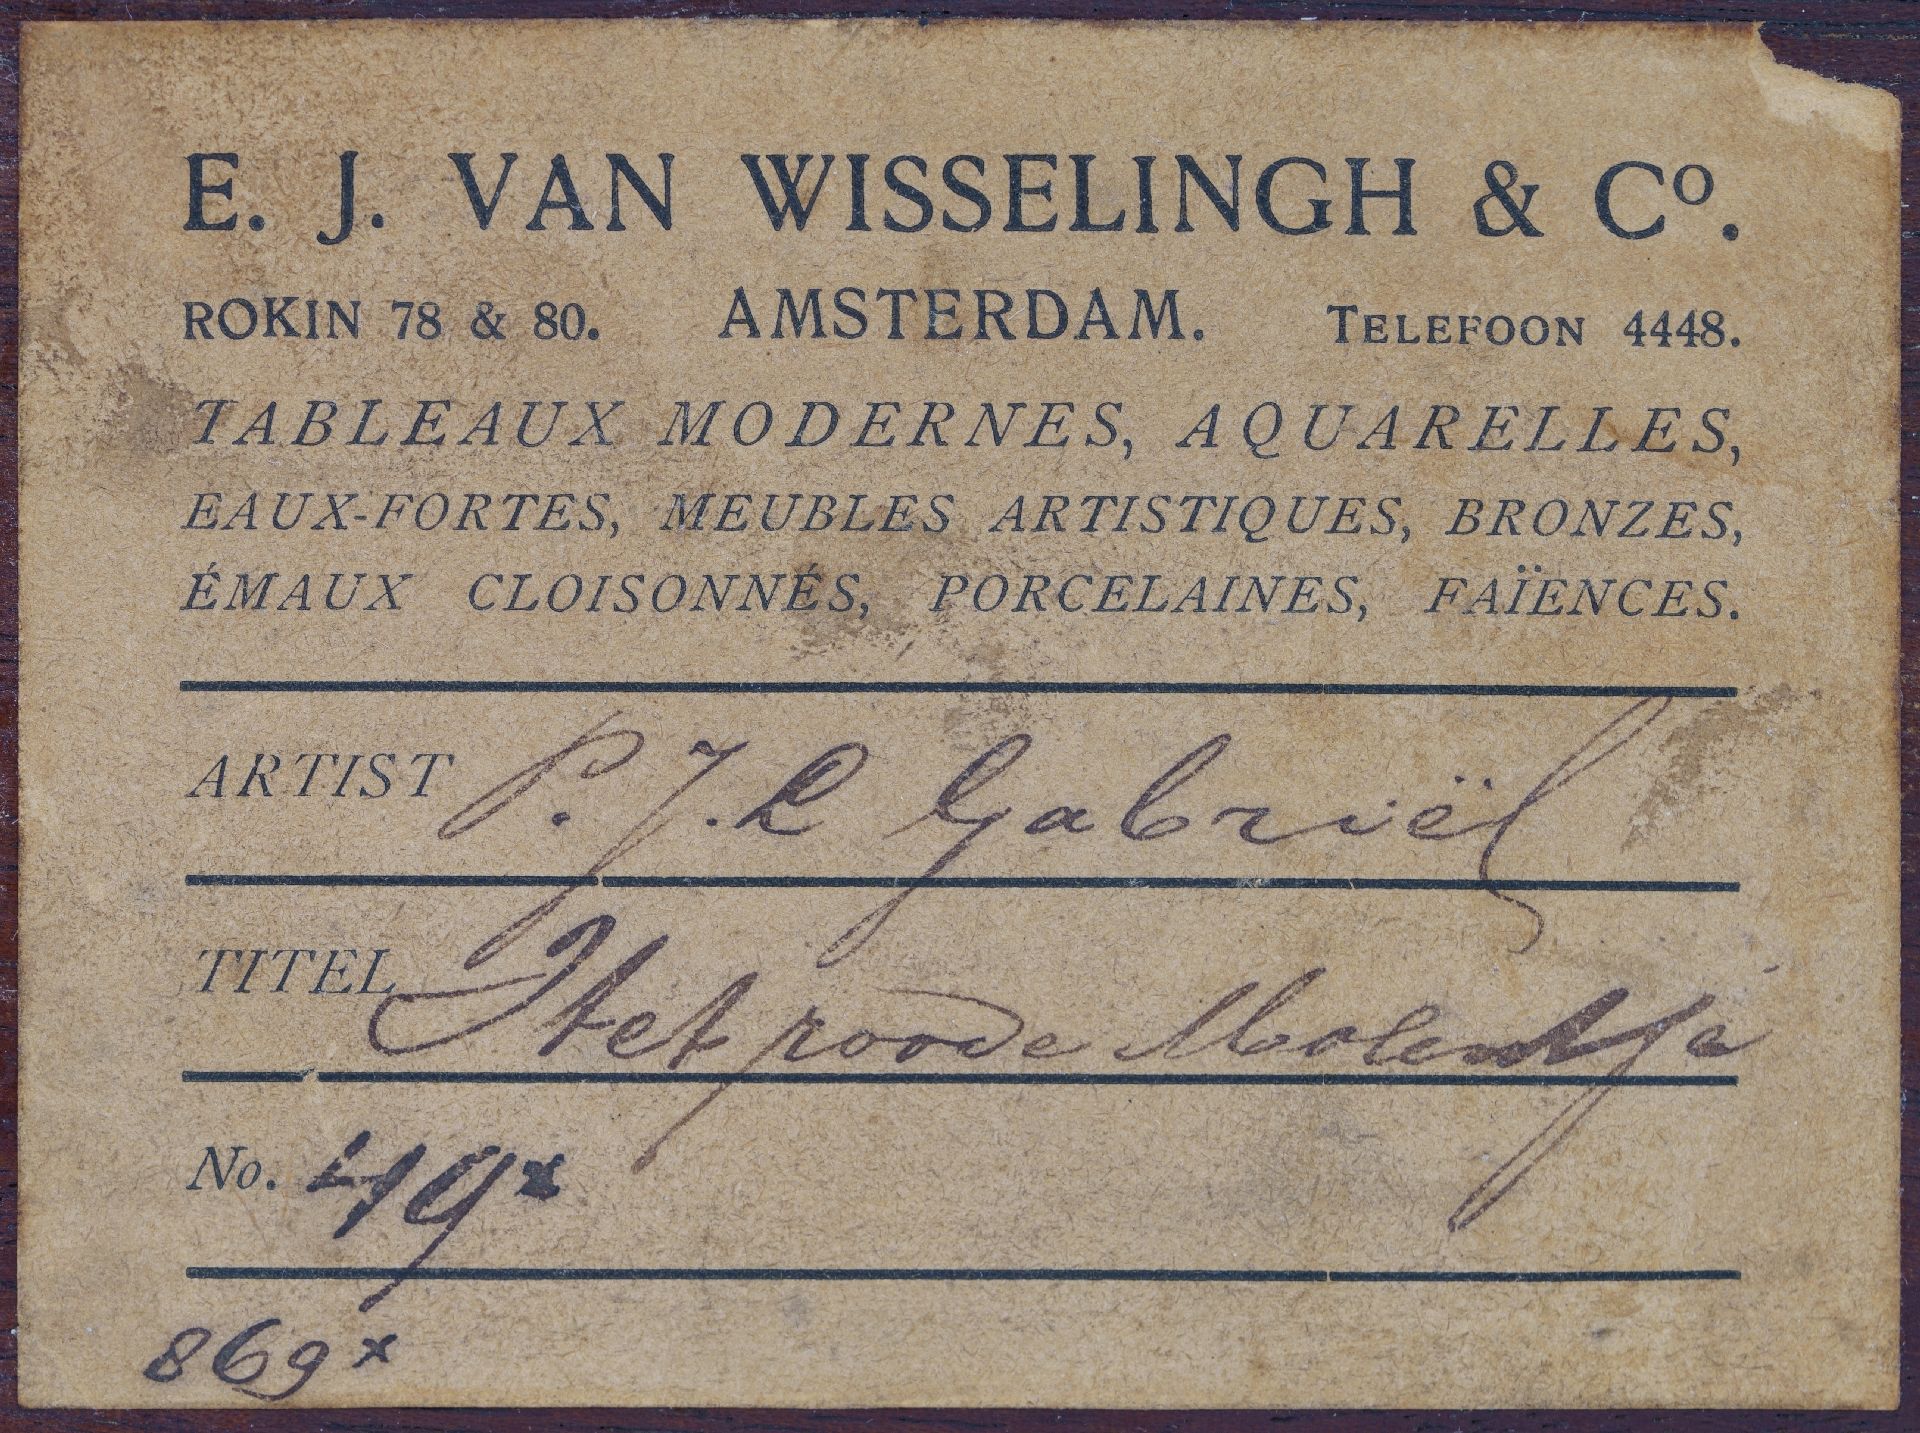 E. J. VAN WISSELINGH & Cº.
ROKIN 78 & 80. AMSTERDAM. TELEFOON 4448.
TABLEAUX MODERNES, AQUARELLES,
EAUX-FORTES, MEUBLES ARTISTIQUES, BRONZES,
ÉMAUX CLOISONNÉS, PORCELAINES, FAÏENCES.
ARTIST P. J. C Gabriël
TITEL Het roode Molentje
No. 49x
869x